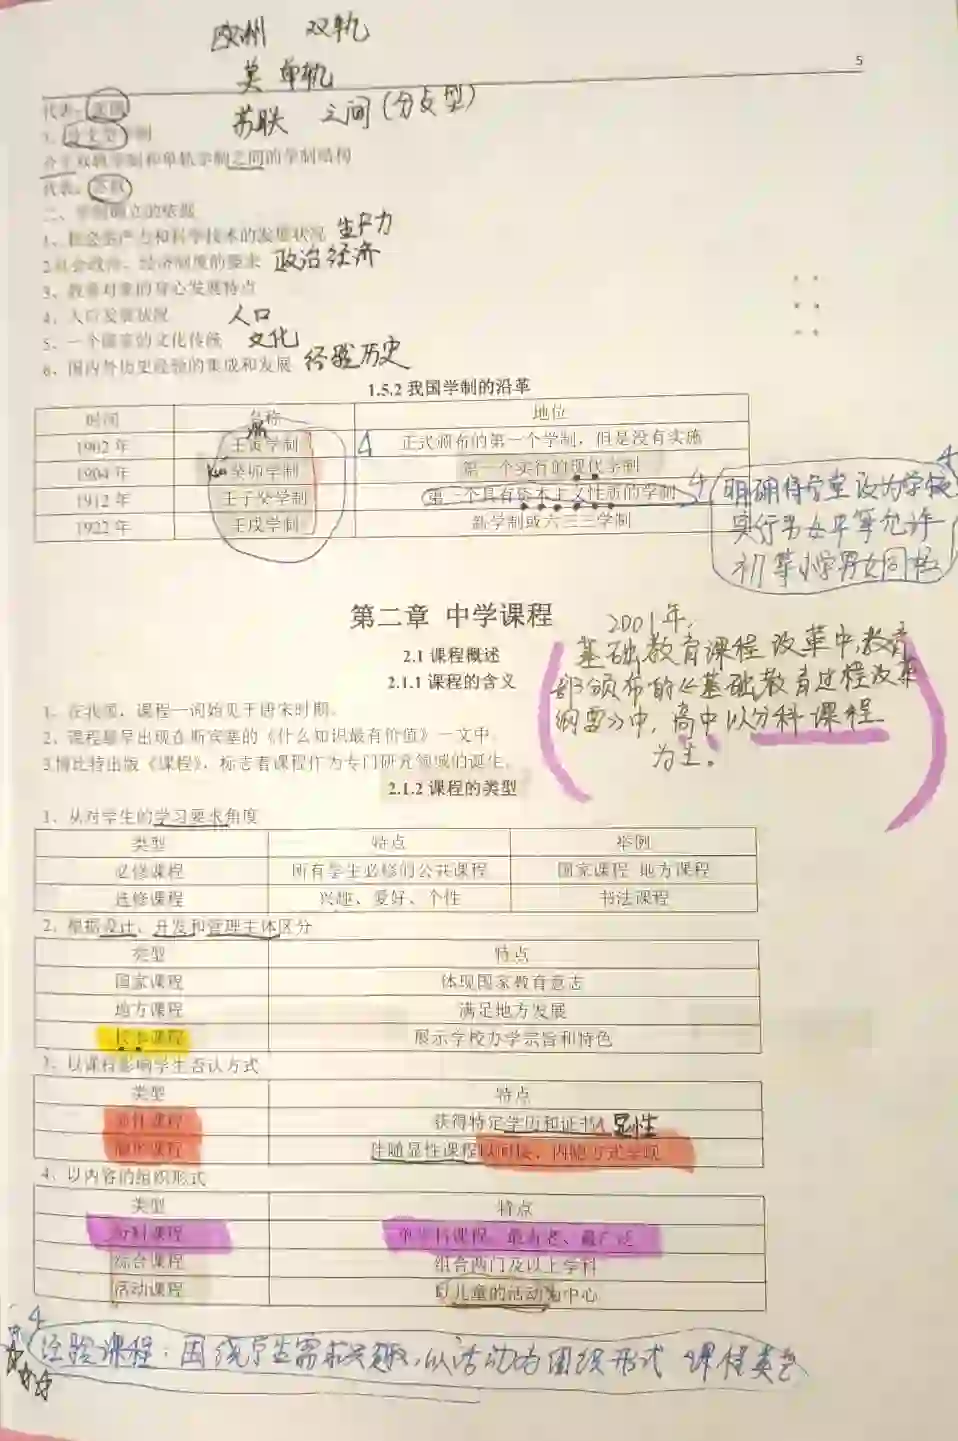 欧洲 双轨
美 单轨
5
苏联 之间(分支型)
代表:美国
3、分支型学制
介于双轨学制和单轨学制之间的学制结构
代表:苏联
二、学制确立的依据
1、社会生产力和科学技术的发展状况 生产力
2.社会政治、经济制度的要求 政治经济
3、教育对象的身心发展特点
4、人口发展状况 人口
5、一个国家的文化传统 文化
6、国内外历史经验的集成和发展 经验历史
1.5.2 我国学制的沿革
时间 名称 地位
1902 年 壬寅学制 正式颁布的第一个学制,但是没有实施
1904 年 癸卯学制 第一个实行的现代学制
1912 年 壬子癸学制 第一个具有资本主义性质的学制
1922 年 壬戌学制 新学制或六三三学制
明确将学堂改为学校
实行男女平等允许
初等小学男女同校
第二章 中学课程
2.1 课程概述
2.1.1 课程的含义
1、在我国,课程一词始见于唐宋时期。
2、课程最早出现在斯宾塞的《什么知识最有价值》一文中。
3.博比特出版《课程》,标志着课程作为专门研究领域的诞生。
2001年,
基础教育课程改革中,教育
部颁布的《基础教育过程改革
纲要》中,高中以分科课程
为主。
2.1.2 课程的类型
1、从对学生的学习要求角度
类型 特点 举例
必修课程 所有学生必修们公共课程 国家课程 地方课程
选修课程 兴趣、爱好、个性 书法课程
2、根据设计、开发和管理主体区分
类型 特点
国家课程 体现国家教育意志
地方课程 满足地方发展
校本课程 展示学校办学宗旨和特色
3、以课程影响学生否认方式
类型 特点
显性课程 获得特定学历和证书 显性
隐形课程 伴随显性课程以间接、内隐方式呈现
4、以内容的组织形式
类型 特点
分科课程 单学科课程、最古老、最广泛
综合课程 组合两门及以上学科
活动课程 以儿童的活动为中心
经验课程:围绕学生需求兴趣,以活动为组织形式 课程类型